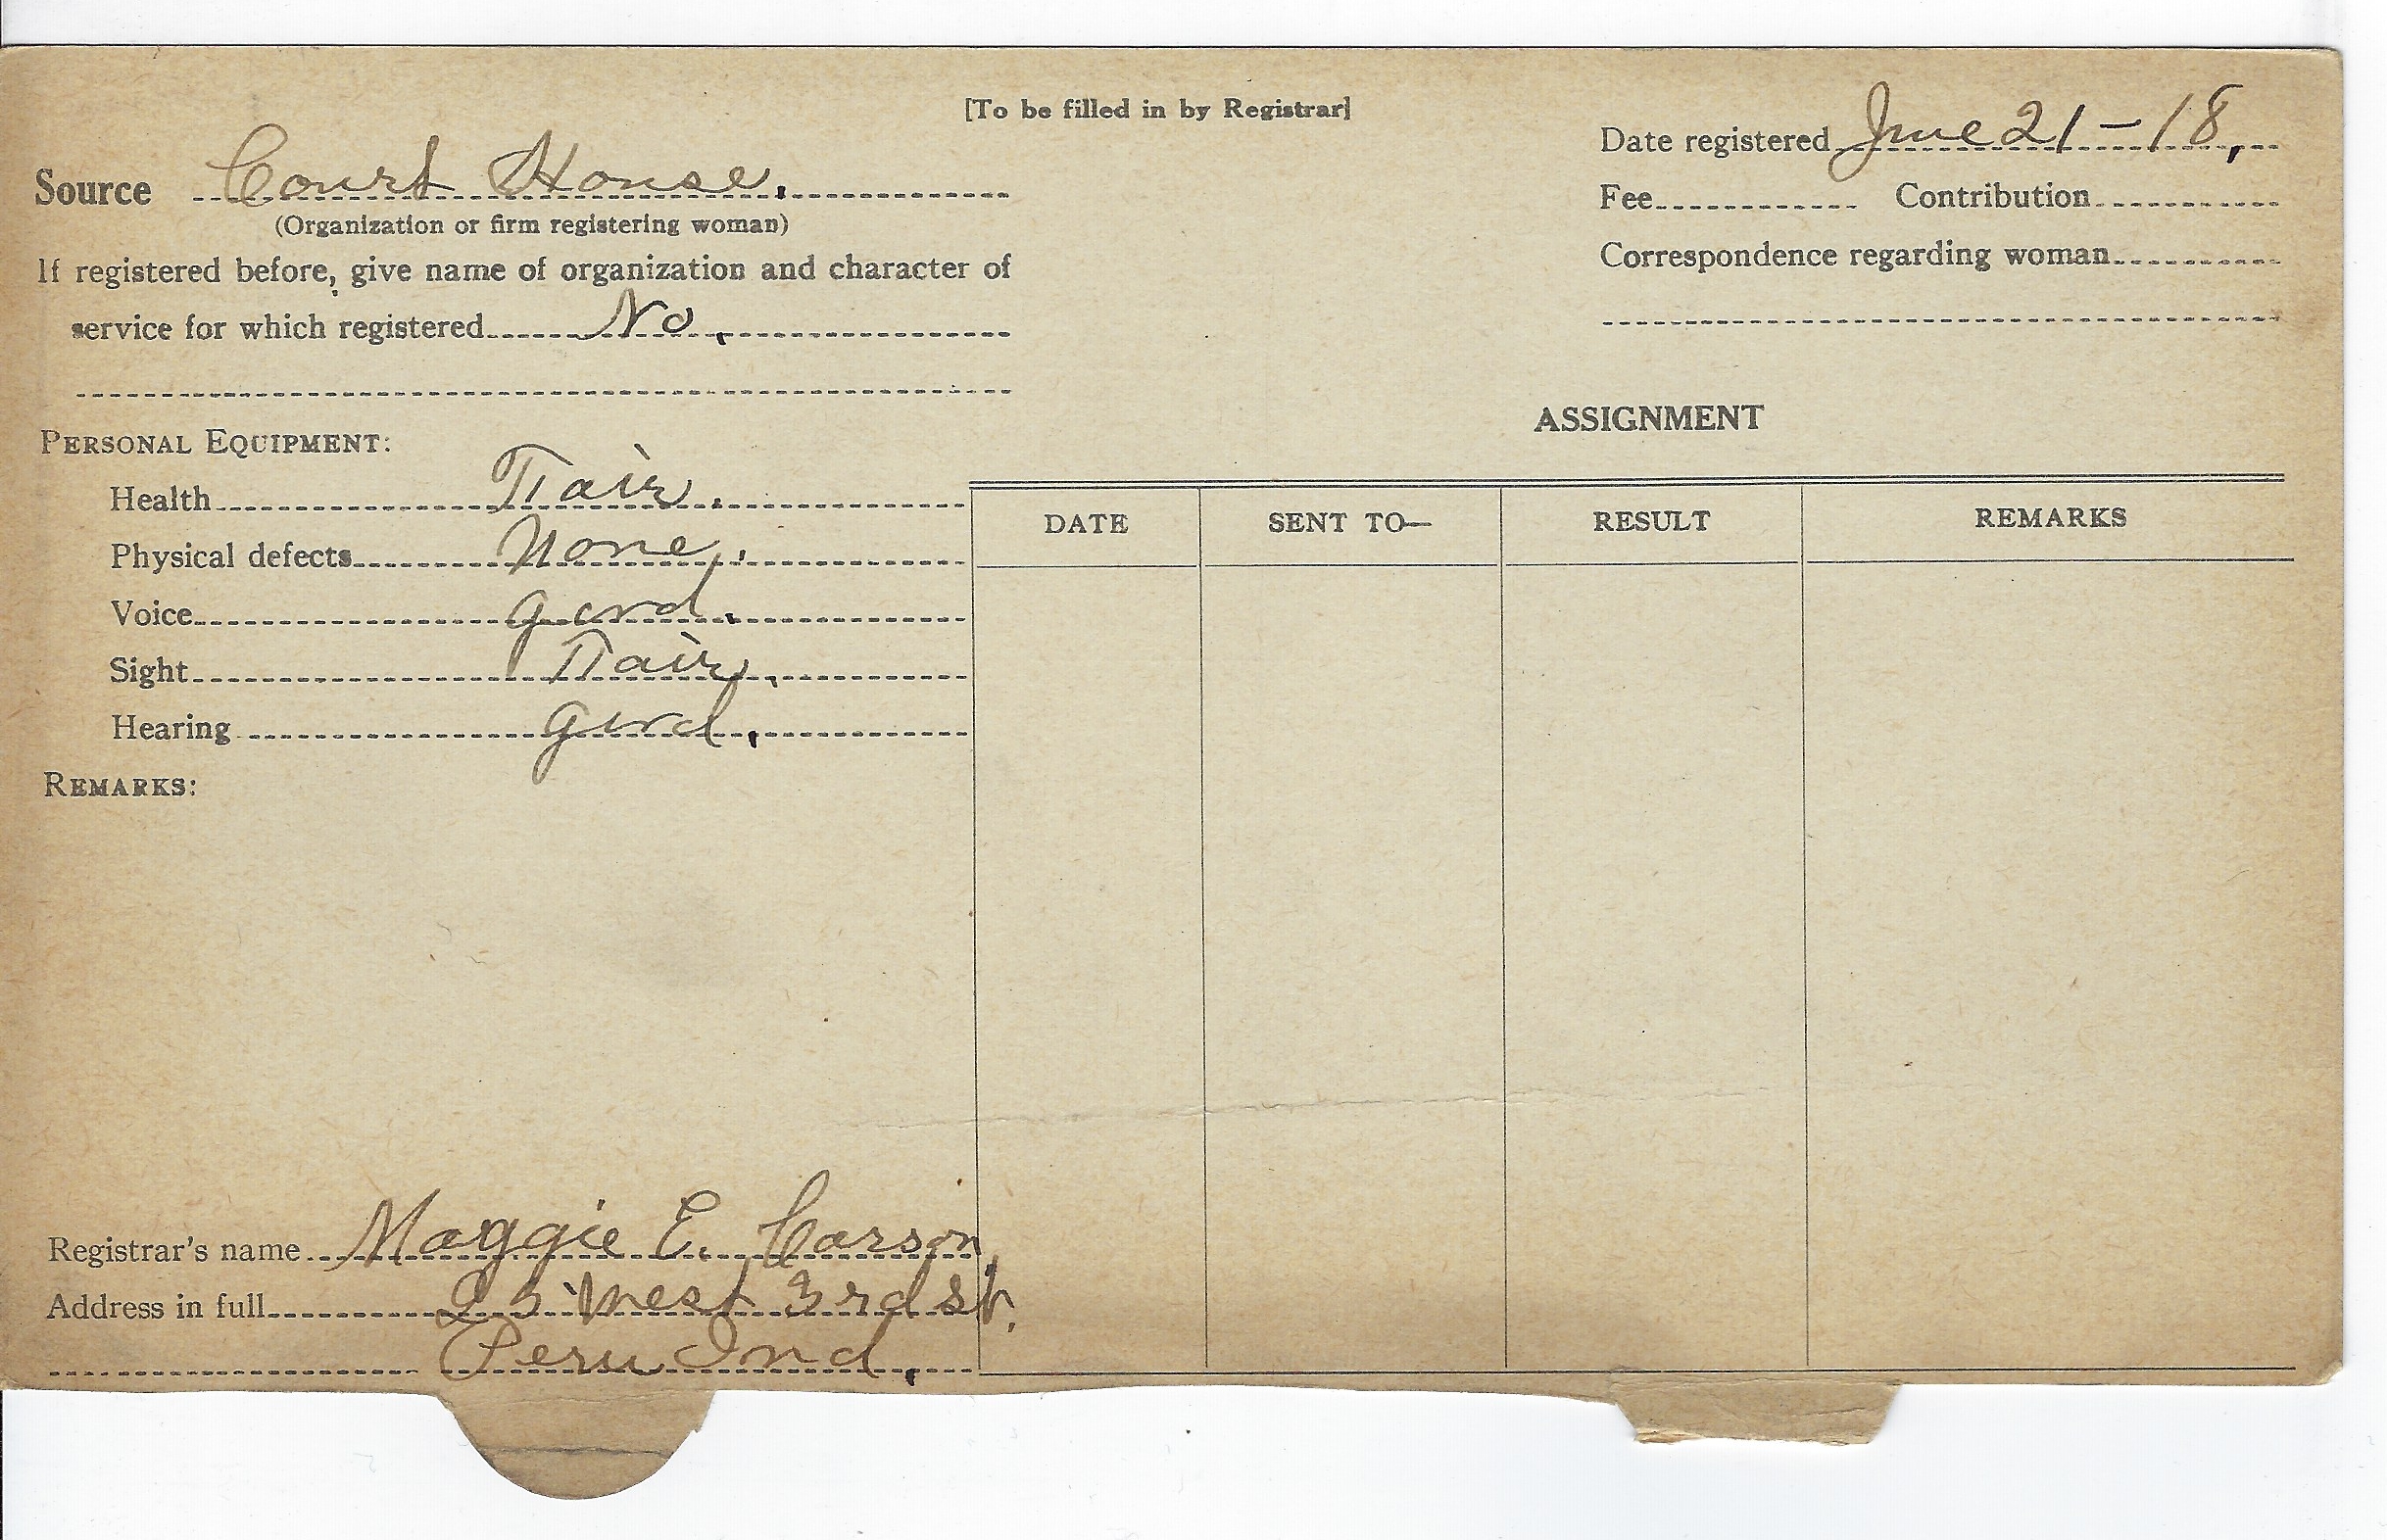 [To be filled in by Registrar]
Date registered June 21-18,
Source Court House.
(Organization or firm registering woman)
Fee Contribution
If registered before, give name of organization and character of
Correspondence regarding woman
service for which registered No.
ASSIGNMENT
PERSONAL EQUIPMENT:
Health Fair.
Physical defects None.
Voice good.
Sight Fair.
Hearing good.
DATE SENT TO— RESULT REMARKS
REMARKS:
Registrar's name Maggie E. Carson.
Address in full 25 West 3rd St.
Peru Ind.